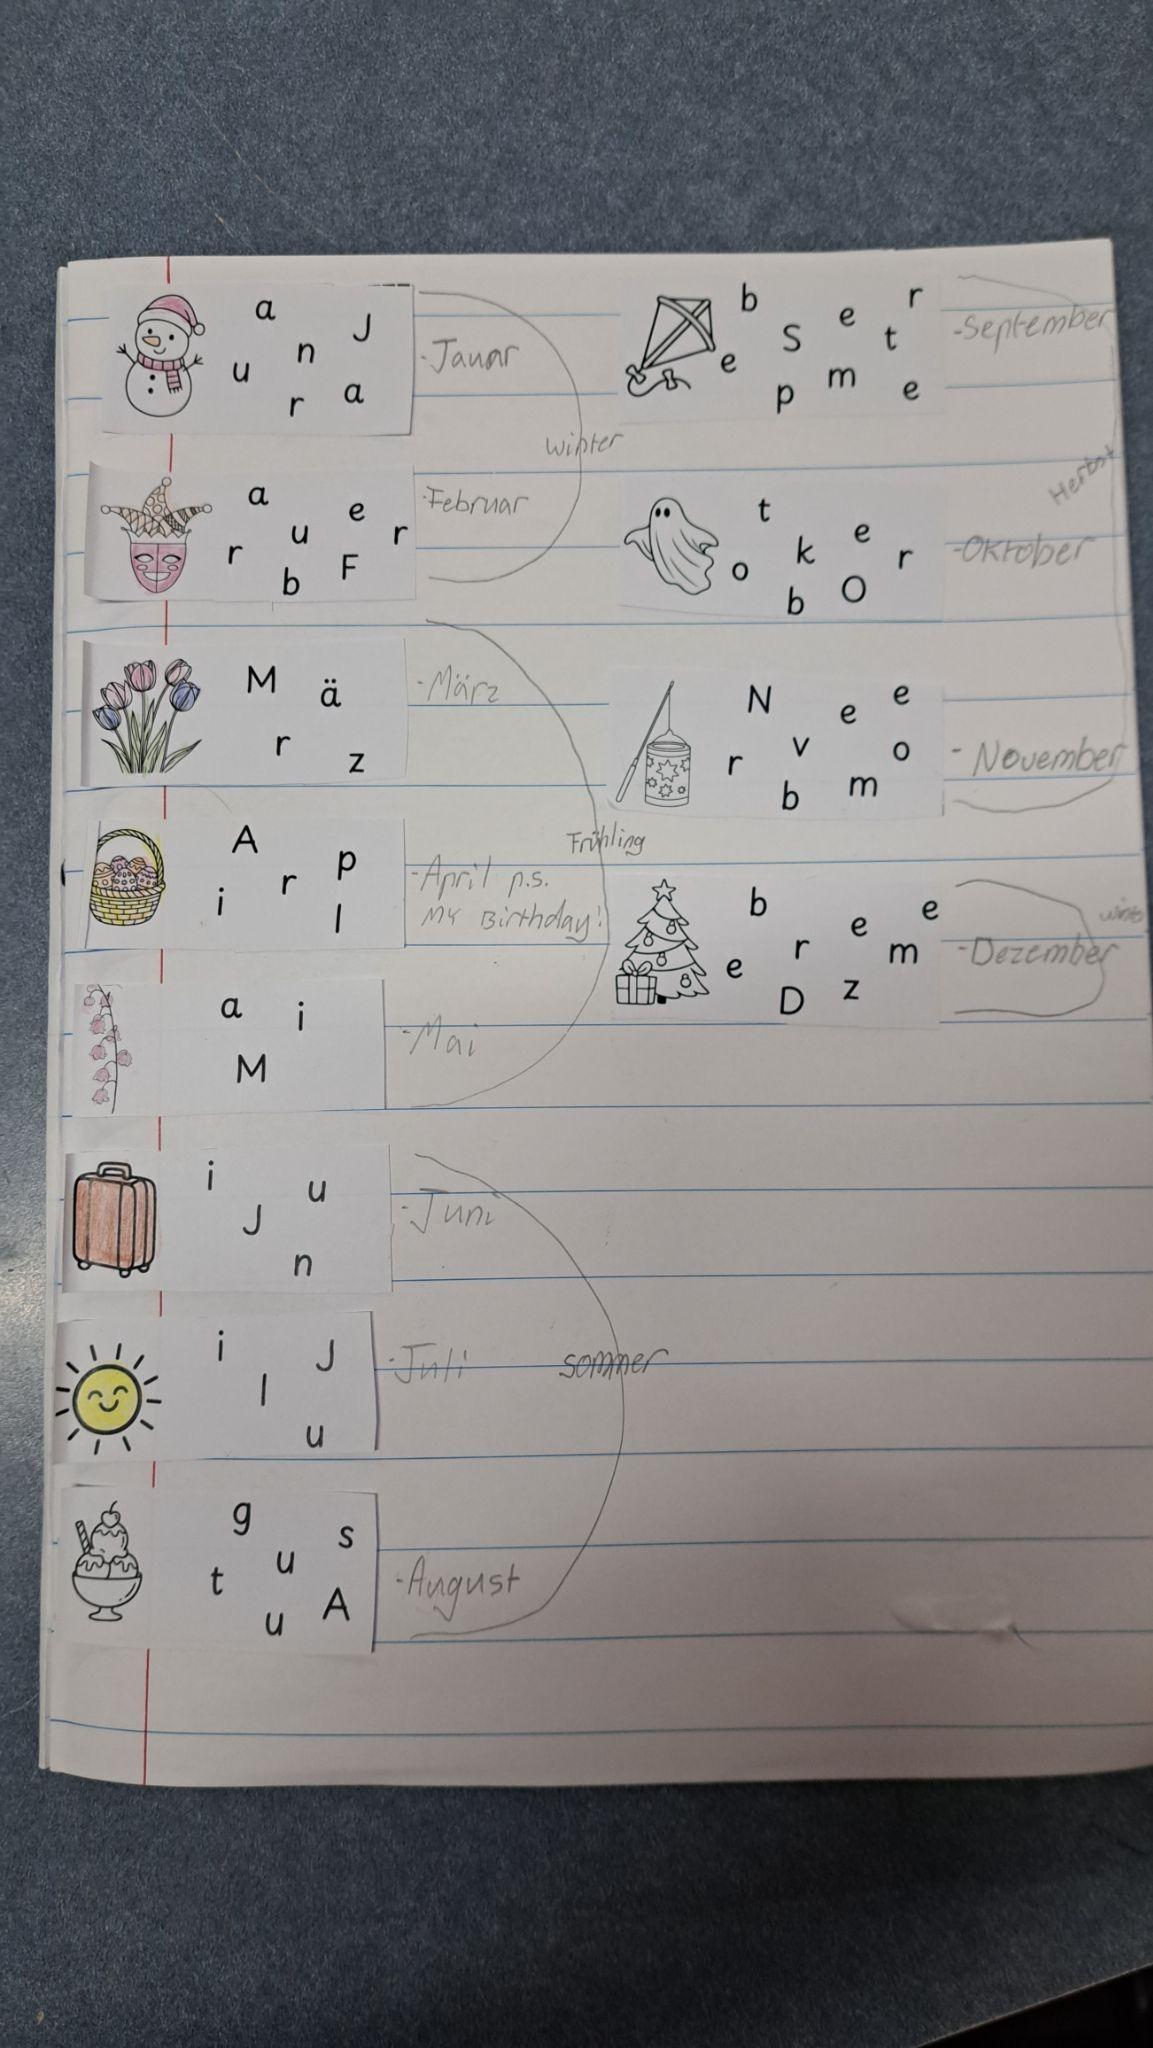 a J
u n
r a
-Januar
winter
a e
r u r
b F
-Februar
M ä
r z
-März
A p
i r
l
-April p.s.
My Birthday!
Frühling
a i
M
-Mai
i u
J
n
-Juni
i J
l
u
-Juli
sommer
g s
t u
u A
-August
b e r
e S t
p m e
-September
t e
o k r
b O
-Oktober
Herbst
N e e
r v o
b m
-November
b e e
e r m
D z
-Dezember
winter